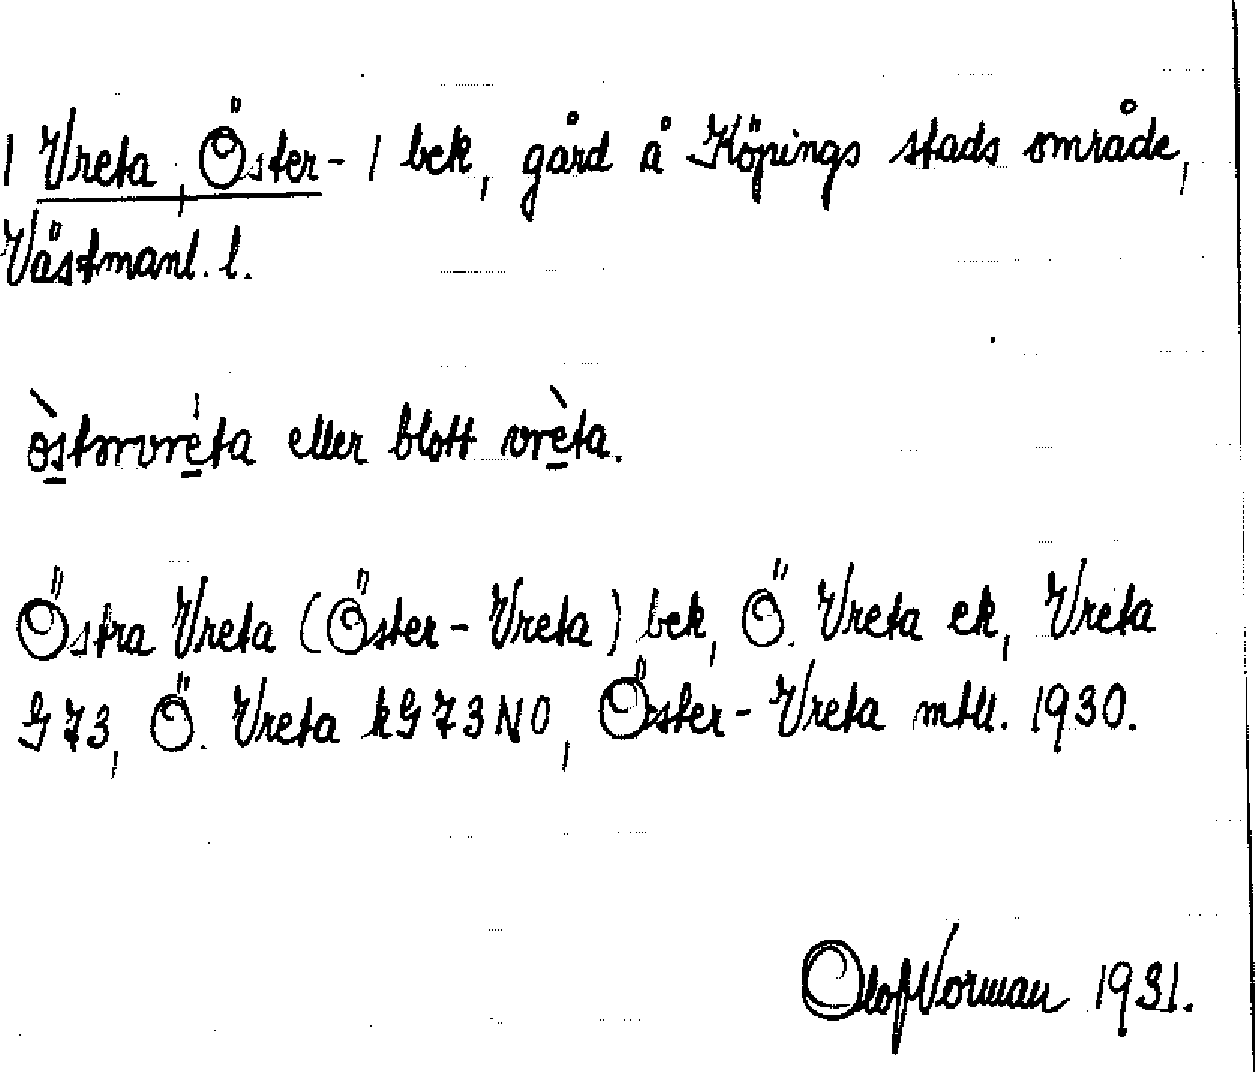 1 Vreta, Öster- 1 bek, gård å Köpings stads område,
Västmanl. l.
östərvréta eller blott vrèta.
Östra Vreta (Öster-Vreta) bek, Ö. Vreta ek, Vreta
G 73, Ö. Vreta kG 73 NO, Öster-Vreta mtll. 1930.
Olof Norman 1931.